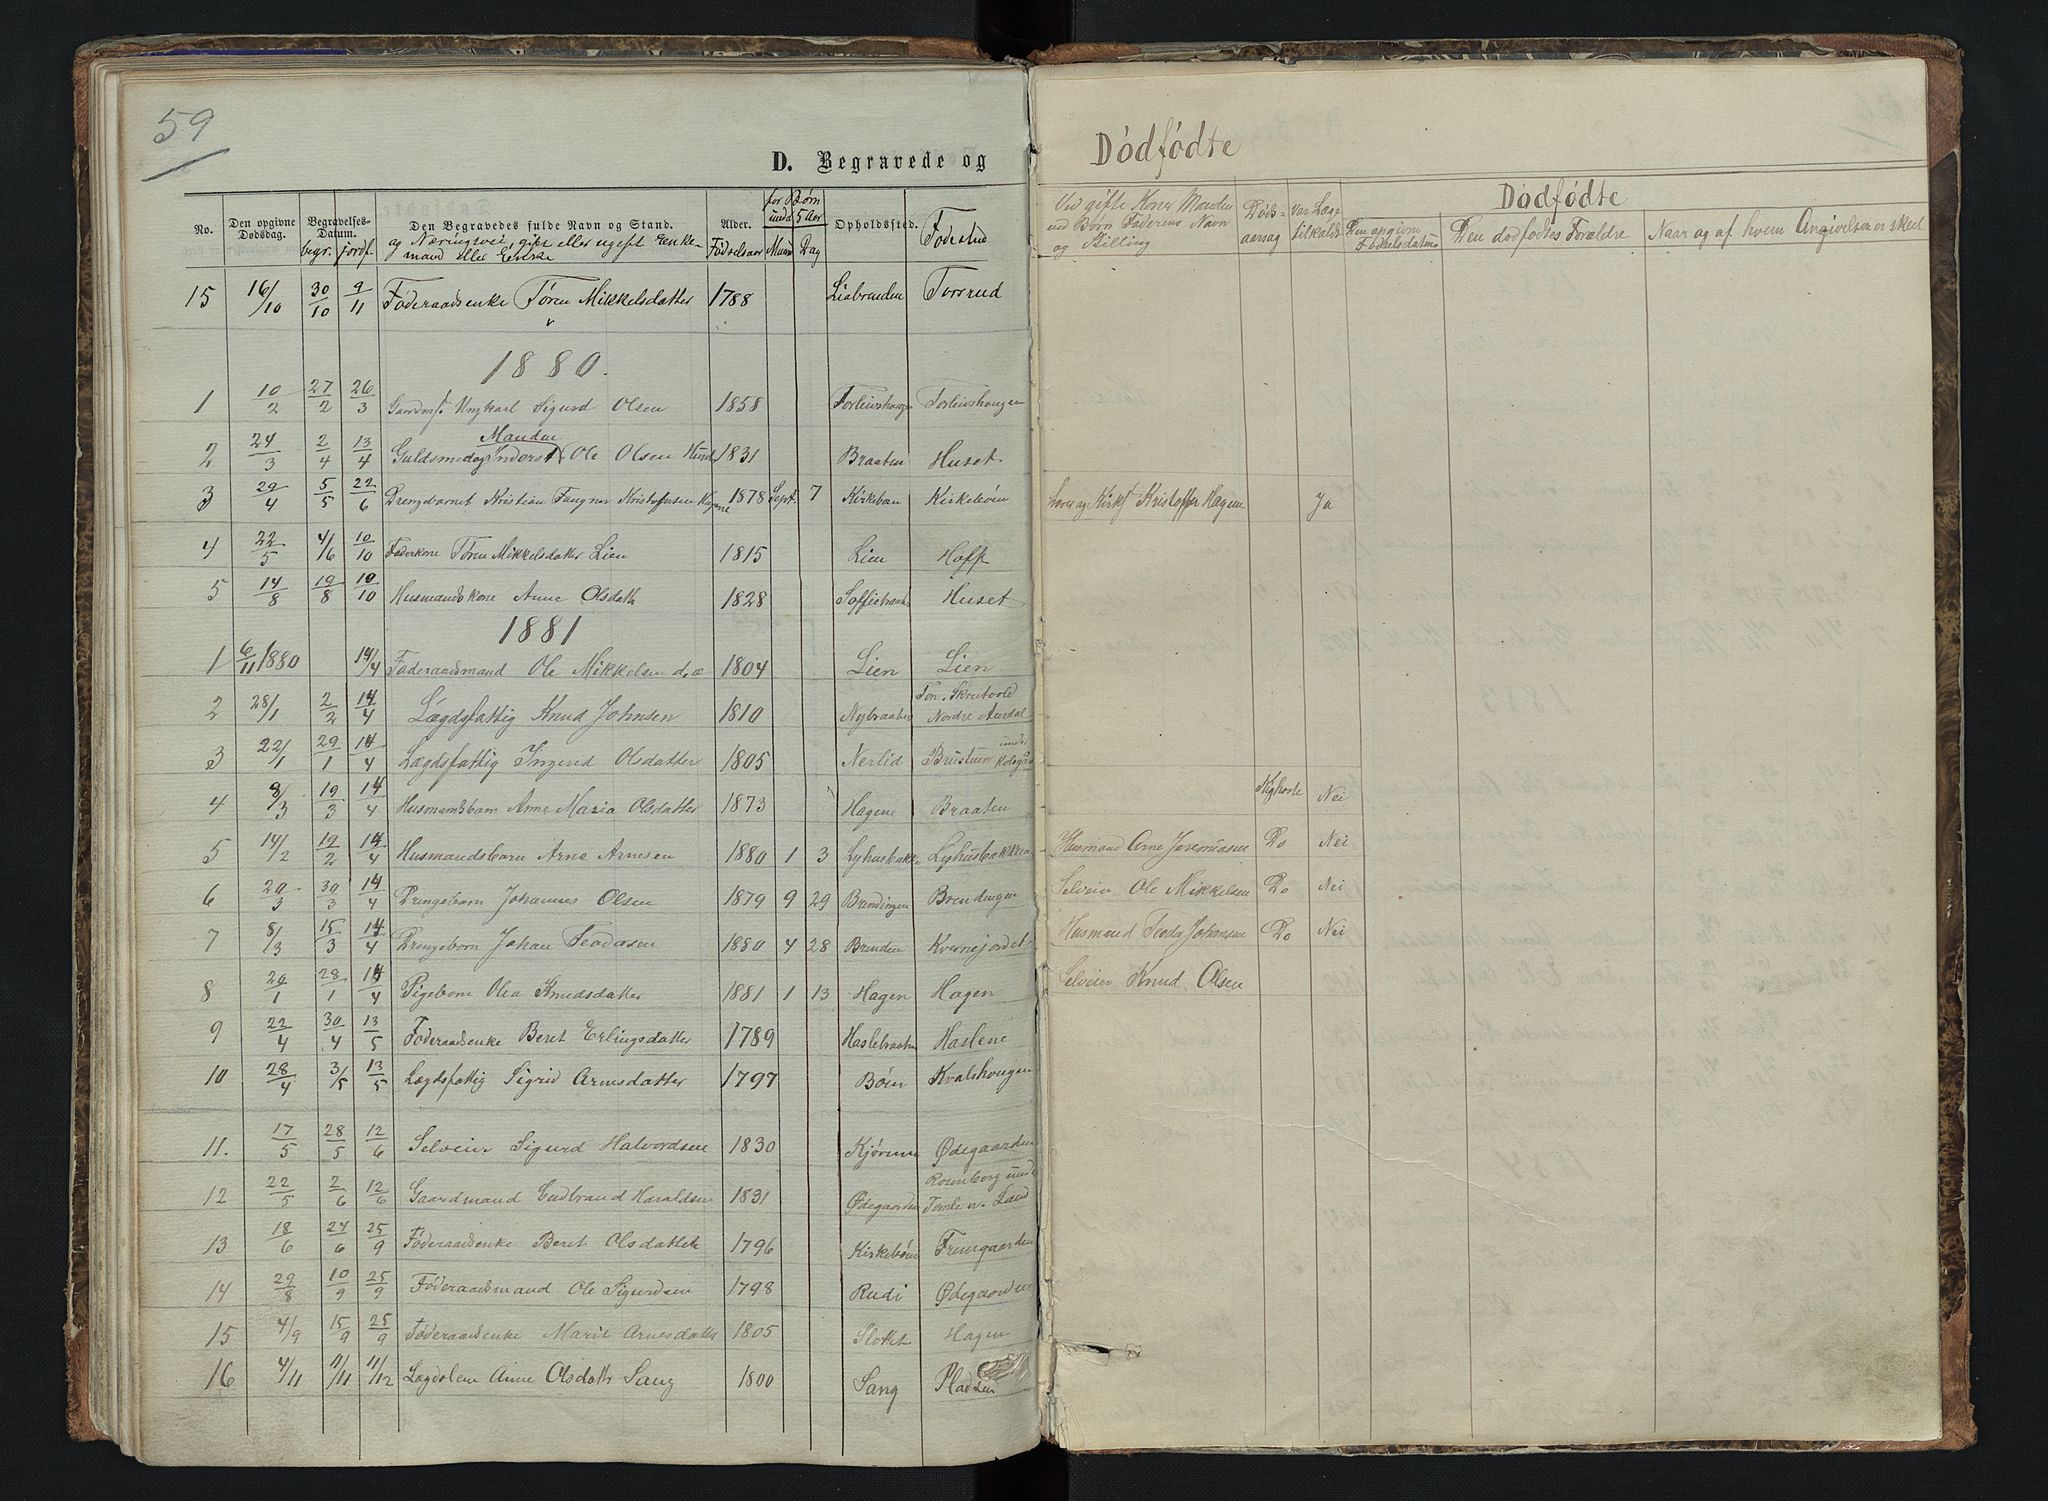 59
D. Begravede og
No. Den opgivne Dødsdag. Begravelses-Datum. begr. jordf. Den Begravedes fulde Navn og Stand. og Næringsvei, gift eller ugift Enkemand eller Enke Alder. Fødselsaar for Børn under 5 Aar Maan Dag Opholdssted. Fødested
15 16/10 30/10 9/11 Føderaadsenke Tøren Mikkelsdatter 1788 Liabrenden Torsrud
1880.
1 10/2 27/2 26/3 Gaardmf. Ungkarl Sigurd Olsen 1858 Torleivshaugen Torleivshaugen
Manden
2 24/3 2/4 13/4 Guldsmed og Inderst Ole Olsen 1831 Braaten Huset.
3 29/4 5/5 22/6 Drengebarnet Kristian Kristoffersen Hagene 1878 Sept. 7 Kirkebøn Kirkebøen
4 22/5 4/6 10/10 Føderkone Tøren Mikkelsdatter Lien 1815 Lien Hoff
5 14/8 19/8 10/10 Husmandskone Anne Olsdatt 1828 Soffiebraaten Huset
1881
1 6/11 1880 14/4 Føderaadsmand Ole Mikkelsen d.æ 1804 Lien Lien
2 28/1 2/2 14/4 Lægdsfattig Knud Johnsen 1810 Nybraaten Nordre Aurdal
3 22/1 29/1 14/4 Lægdsfattig Ingerid Olsdatter 1805 Nerlid Brustuen under
4 8/3 19/3 14/4 Husmandsbarn Anne Maria Olsdatter 1873 Hagene Braaten
5 14/2 19/2 14/4 Husmandsbarn Arne Arnesen 1880 1 3 Lyhusbakke Lyhusbakken
6 29/3 30/3 14/4 Drengebarn Johannes Olsen 1879 9 29 Brendingen Brendingen
7 8/3 15/3 14/4 Drengebarn Johan Teodorsen 1880 4 28 Brenden Kvernejordet
8 29/1 28/1 14/4 Pigebarn Olea Knudsdatter 1881 1 13 Hagen Hagen
9 22/4 30/4 13/5 Føderaadsenke Beret Erlingsdatter 1789 Haslebraaten Haslene
10 28/4 3/5 13/5 Lægdsfattig Sigrid Arnesdatter 1797 Bøen Kvalshaugen
11. 17/5 28/5 12/6 Selveier Sigurd Halvordsen 1830 Kjørum Ødegaarden
12 22/5 2/6 12/6 Gaardmand Gudbrand Haraldsen 1831 Ødegaarden Rosenberg under Land
13 18/6 24/6 25/9 Føderaadsenke Beret Olsdatter 1796 Kirkebøen
14 29/8 10/9 25/9 Føderaadsmand Ole Sigurdsen 1798 Rudi Ødegaarden
15 4/9 15/9 25/9 Føderaadsenke Marit Arnesdatter 1805 Sloket Hagen
16 4/11 11/11 11/12 Lægdslem Anne Olsdatt Sang 1800 Sang Pladsen
Dødfødte
Ved gifte Koner Manden ved Børn Faderens Navn og Stilling Dødsaarsag Var Læge tilkaldt Dødfødte
Den opgivne Fødselsdatum Den dødfødtes Forældre Naar og af hvem Angivelsen er skeet
Lærer og Kirks Kristoffer Hagene Ja
Kighoste Nei
Husmand Arne Jeremiasen Do Nei
Selveier Ole Mikkelsen Do Nei
Husmand Teodor Johansen Do Nei
Selveier Knud Olsen